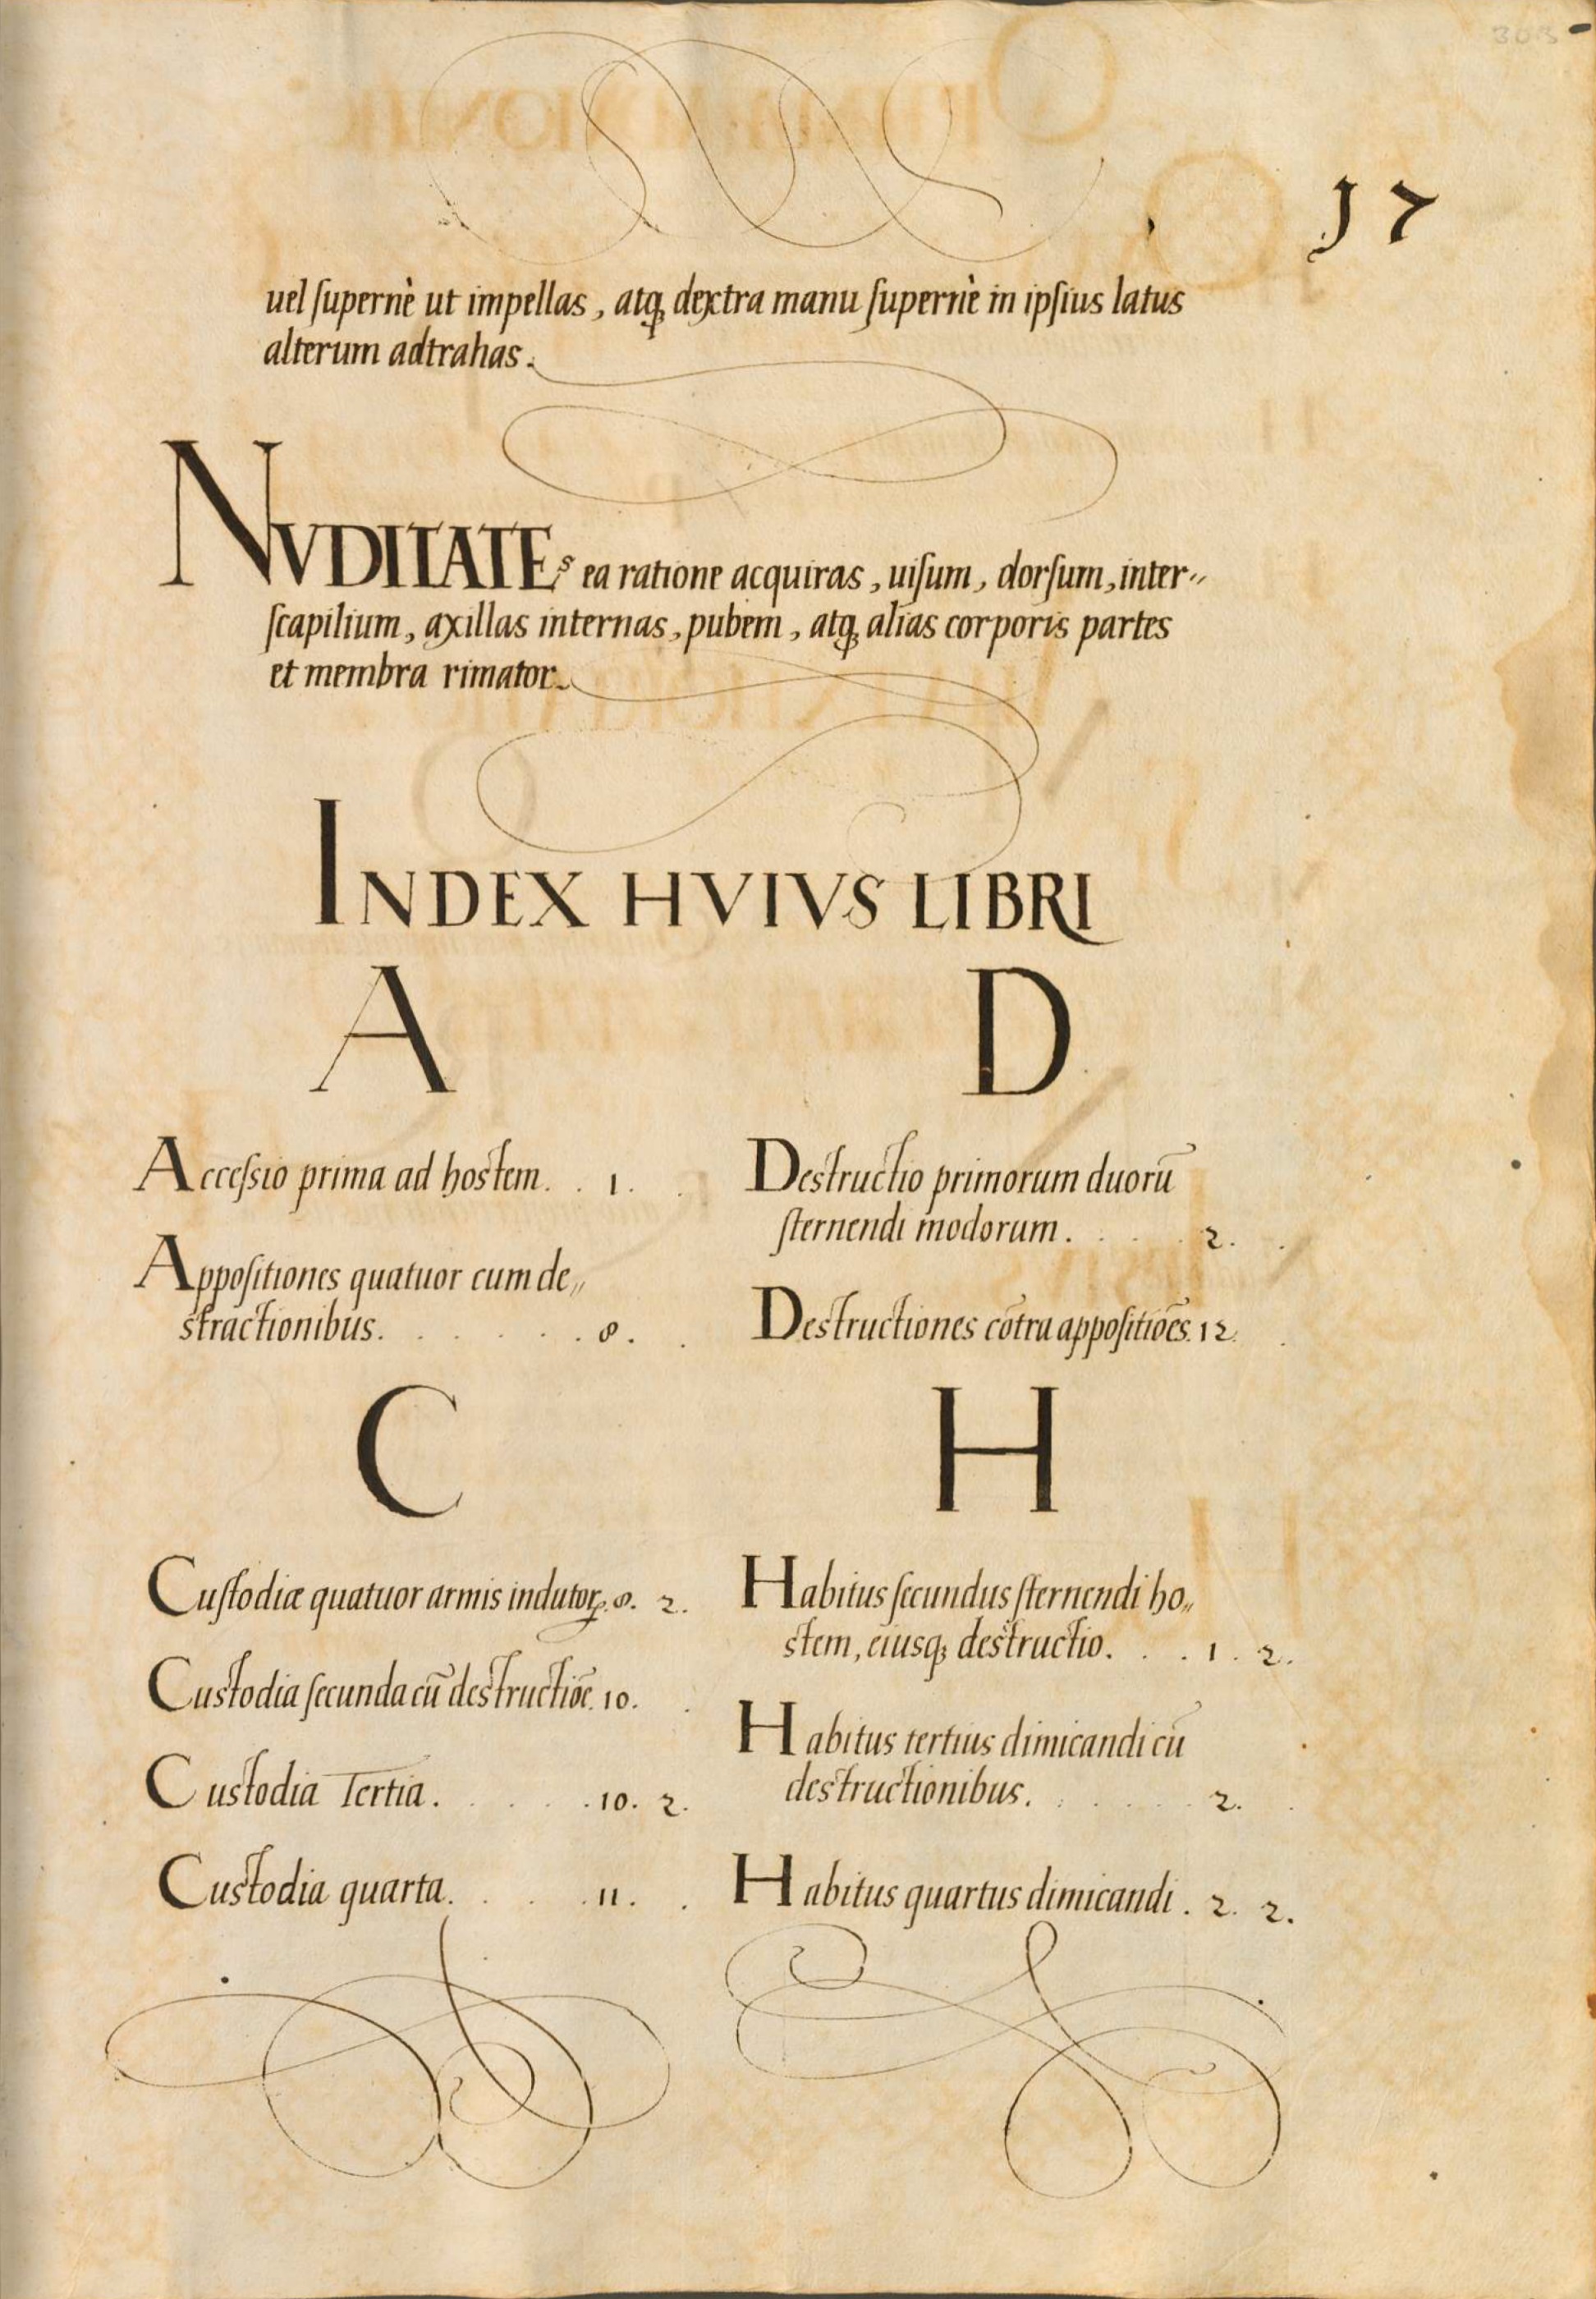 303
17
uel ſupernè ut impellas, atq̨ dextra manu ſupernè in ipſius latus
alterum adtrahas.
NVDITATEs ea ratione acquiras, uiſum, dorſum, inter〃
ſcapilium, axillas internas, pubem, atq̨ alias corporis partes
et membra rimator.
INDEX HVIVS LIBRI
A
Acceſsio prima ad hostem. . 1.
Appoſitiones quatuor cum de〃
stractionibus. . . . . . 8.
C
Cuſtodiæ quatuor armis indutoꝝ. 8. 2.
Custodia ſecunda cū destructiōe. 10.
Custodia Tertia. . . . . 10. 2.
Custodia quarta. . . . . 11.
D
Destructio primorum duorū
ſternendi modorum. . . . 2.
Destructiones cōtra appoſitiōes. 12.
H
Habitus ſecundus ſternendi ho〃
stem, eiusq̨ destructio. . . 1. 2.
Habitus tertius dimicandi cū
destructionibus. . . . . 2.
Habitus quartus dimicandi. 2. 2.